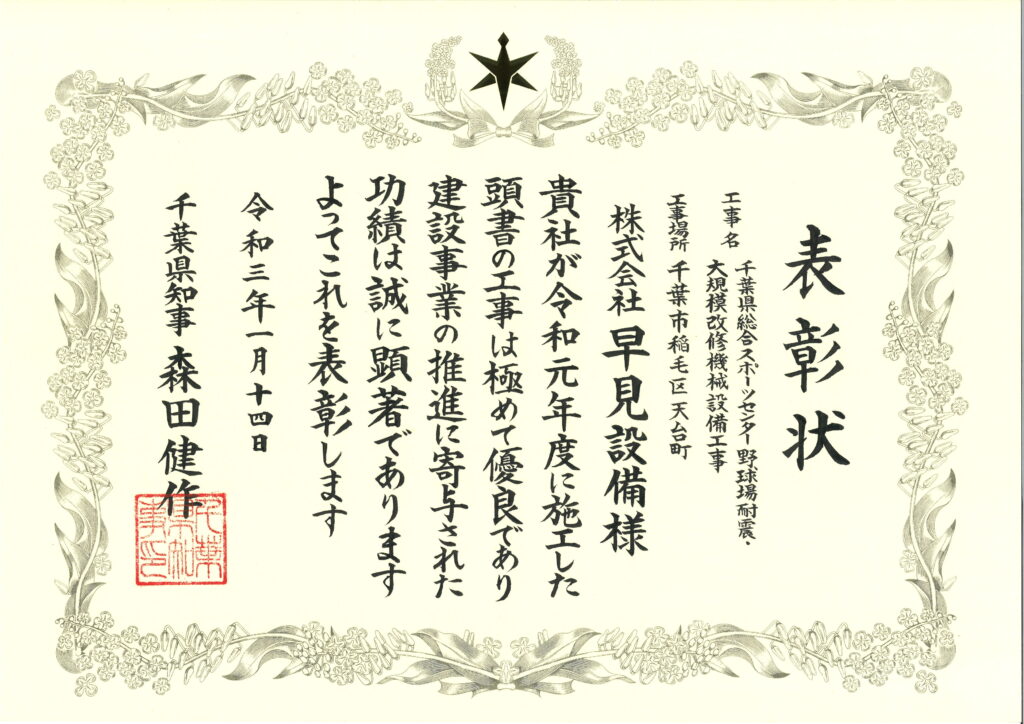 表彰状
工事名 千葉県総合スポーツセンター野球場耐震・
大規模改修機械設備工事
工事場所 千葉市稲毛区天台町
株式会社 早見設備様
貴社が令和元年度に施工した
頭書の工事は極めて優良であり
建設事業の推進に寄与された
功績は誠に顕著であります
よってこれを表彰します
令和三年一月十四日
千葉県知事 森田健作
千葉県知事印